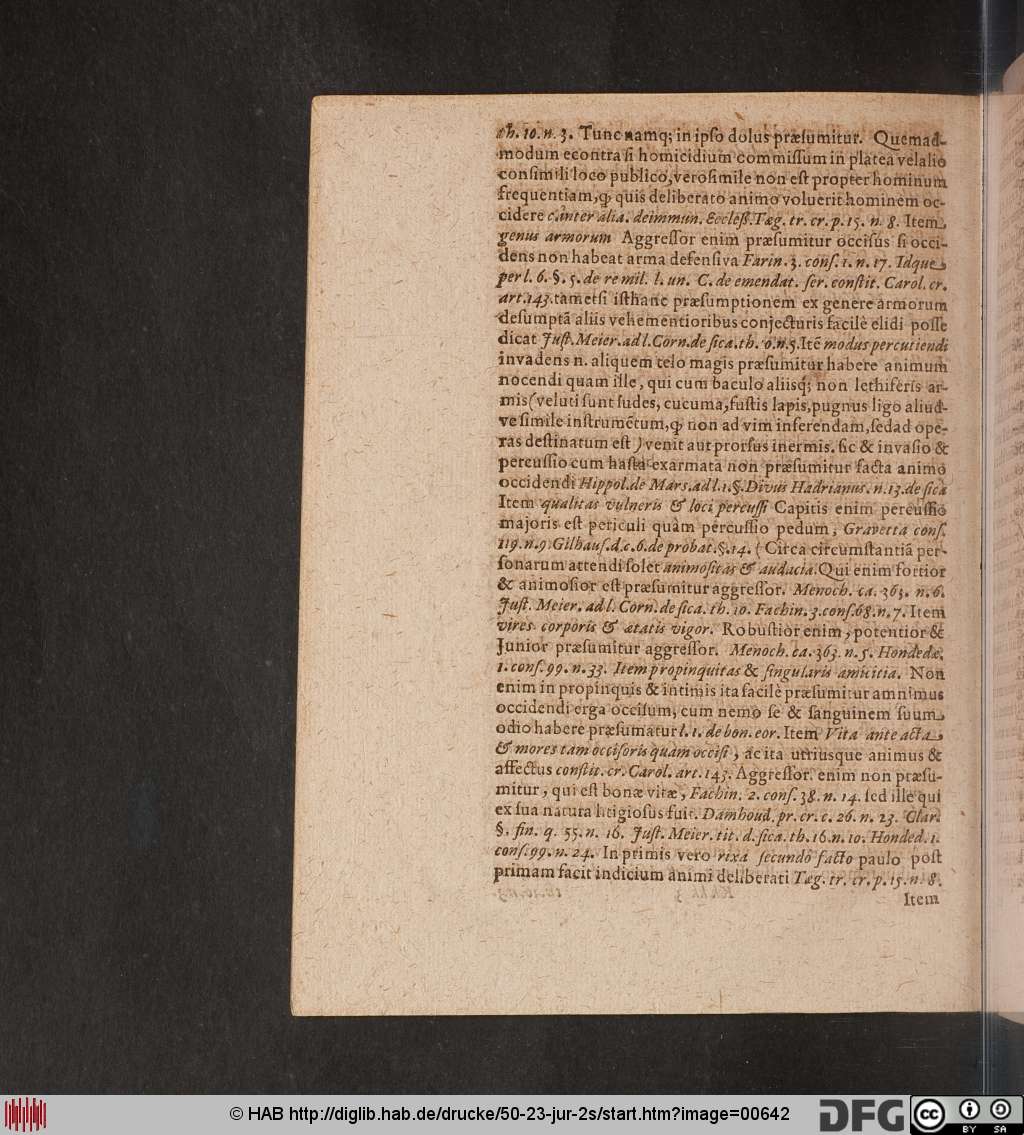 th. 10. n. 3. Tunc namq; in ipso dolus præsumitur. Quemad-
modum econtra si homicidium commissum in platea vel alio
consimili loco publico, verosimile non est propter hominum
frequentiam, ꝙ quis deliberato animo voluerit hominem oc-
cidere c. inter alia. de immun. Eccless. Tæg. tr. cr. p. 15. n. 8. Item
genus armorum Aggressor enim præsumitur occisus si occi-
dens non habeat arma defensiva Farin. 3. cons. 1. n. 17. Idque
per l. 6. §. 5. de re mil. l. un. C. de emendat. ser. constit. Carol. cr.
art. 143. tametsi isthanc præsumptionem ex genere armorum
desumptâ aliis vehementioribus conjecturis facilè elidi posse
dicat Just. Meier. ad l. Corn. de sica. th. 0. n. 5. Itē modus percutiendi
invadens n. aliquem telo magis præsumitur habere animum
nocendi quam ille, qui cum baculo aliisq́; non lethiferis ar-
mis (veluti sunt sudes, cucuma, fustis lapis, pugnus ligo aliud-
ve simile instrumētum, ꝙ non ad vim inferendam, sed ad ope-
ras destinatum est) venit aut prorsus inermis. sic & invasio &
percussio cum hasta exarmata non præsumitur facta animo
occidendi Hippol. de Mars. ad l. 1. §. Divus Hadrianus. n. 13. de sica
Item qualitas vulneris & loci percussi Capitis enim percussio
majoris est periculi quàm percussio pedum, Gravetta cons.
119. n. 9. Gilhaus. d. c. 6. de probat. §. 14. ( Circa circumstantiā per-
sonarum attendi solet animositas & audacia. Qui enim fortior
& animosior est præsumitur aggressor. Menoch. ca. 363. n. 6.
Just. Meier. ad l. Corn. de sica. th. 10. Fachin. 3. cons. 68. n. 7. Item
vires corporis & ætatis vigor. Robustior enim, potentior &
Junior præsumitur aggressor. Menoch. ca. 363. n. 5. Hondedæ.
1. cons. 99. n. 33. Item propinquitas & singularis amicitia. Non
enim in propinquis & intimis ita facilè præsumitur amnimus
occidendi erga occisum, cum nemo se & sanguinem suum
odio habere præsumatur l. 1. de bon. eor. Item Vita ante acta
& mores tam occisoris quàm occisi, ac ita utriusque animus &
affectus constit. cr. Carol. art. 143. Aggressor. enim non præsu-
mitur, qui est bonæ vitæ, Fachin. 2. cons. 38. n. 14. sed ille qui
ex sua natura litigiosus fuit. Damhoud. pr. cr. c. 26. n. 23. Clar.
§. fin. q. 55. n. 16. Just. Meier. tit. d. sica. th. 16. n. 10. Honded. 1.
cons. 99. n. 24. In primis vero rixa secundò facto paulo post
primam facit indicium animi deliberati Tæg. tr. cr. p. 15. n. 8.
Item
© HAB http://diglib.hab.de/drucke/50-23-jur-2s/start.htm?image=00642
DFG
cc
BY SA